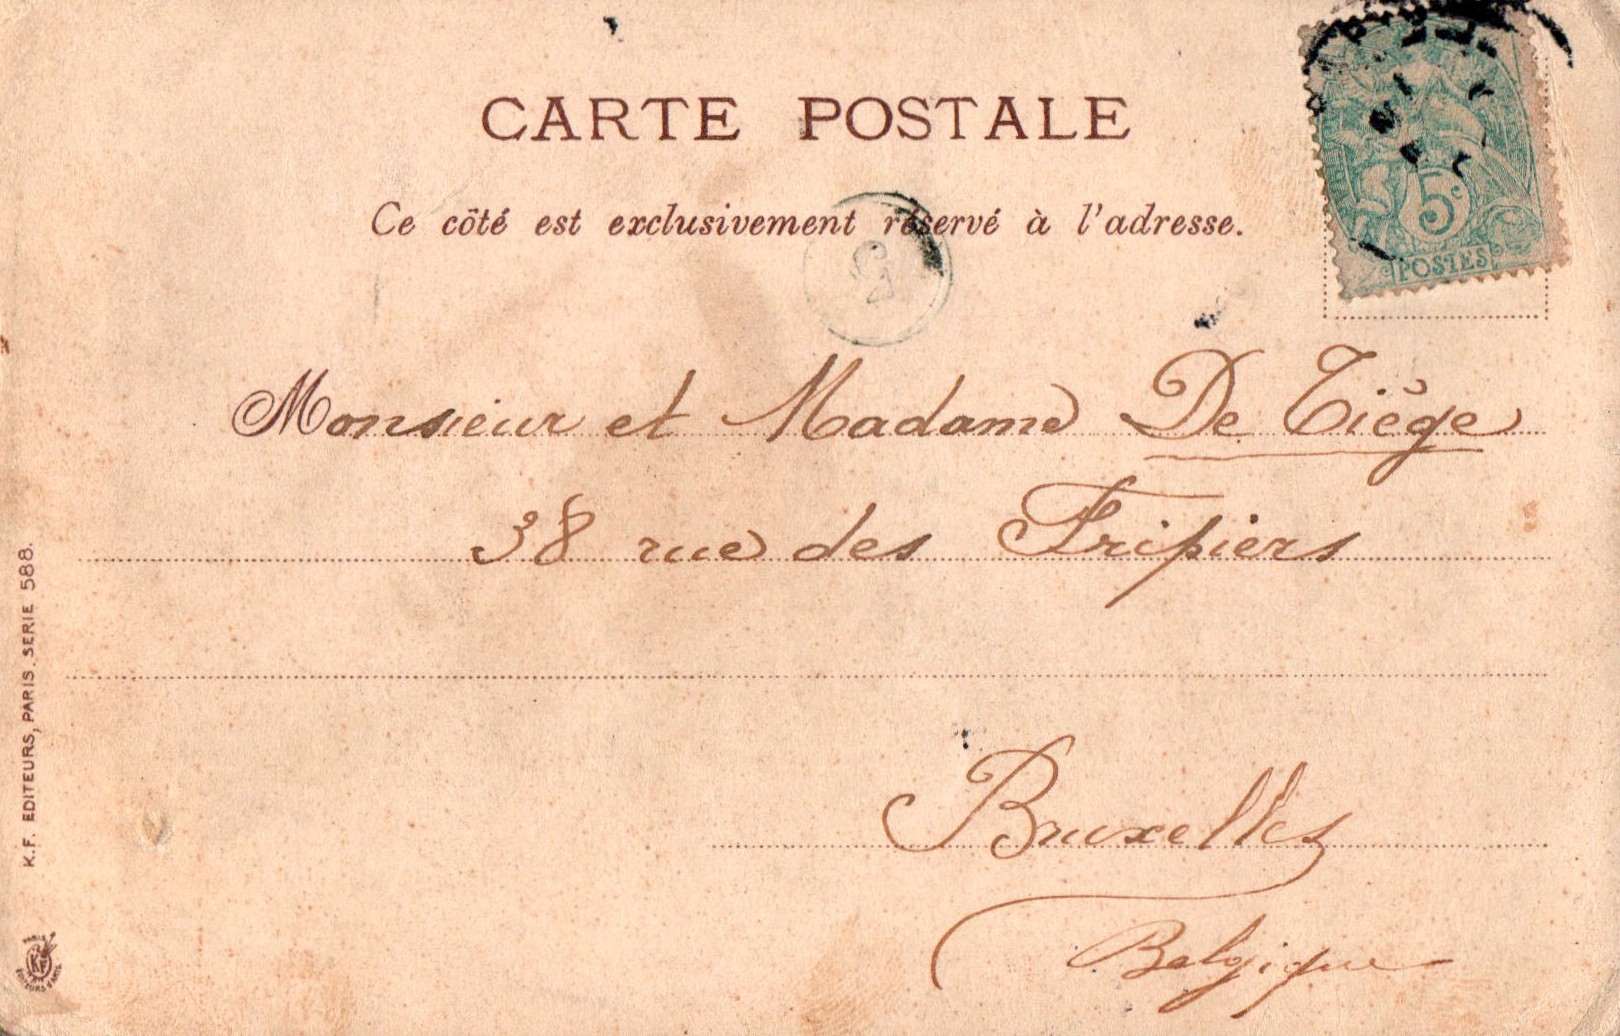 CARTE POSTALE
Ce côté est exclusivement réservé à l'adresse.
5
5c
POSTES
Monsieur et Madame De Tiège
38 rue des Fripiers
Bruxelles
Belgique
K.F. EDITEURS, PARIS. SERIE 588.
PARIS
KF
EDITEURS D'ART